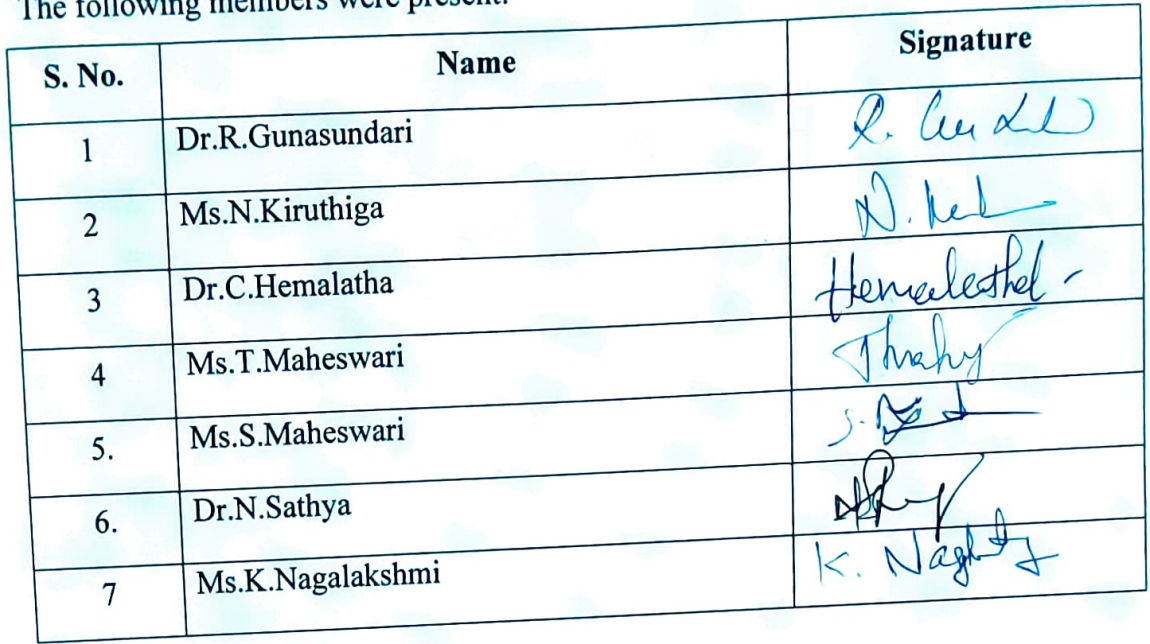 The following members were present:
S. No. Name Signature
1 Dr.R.Gunasundari R.
2 Ms.N.Kiruthiga N.
3 Dr.C.Hemalatha Hemalatha
4 Ms.T.Maheswari
5. Ms.S.Maheswari S.
6. Dr.N.Sathya
7 Ms.K.Nagalakshmi K.